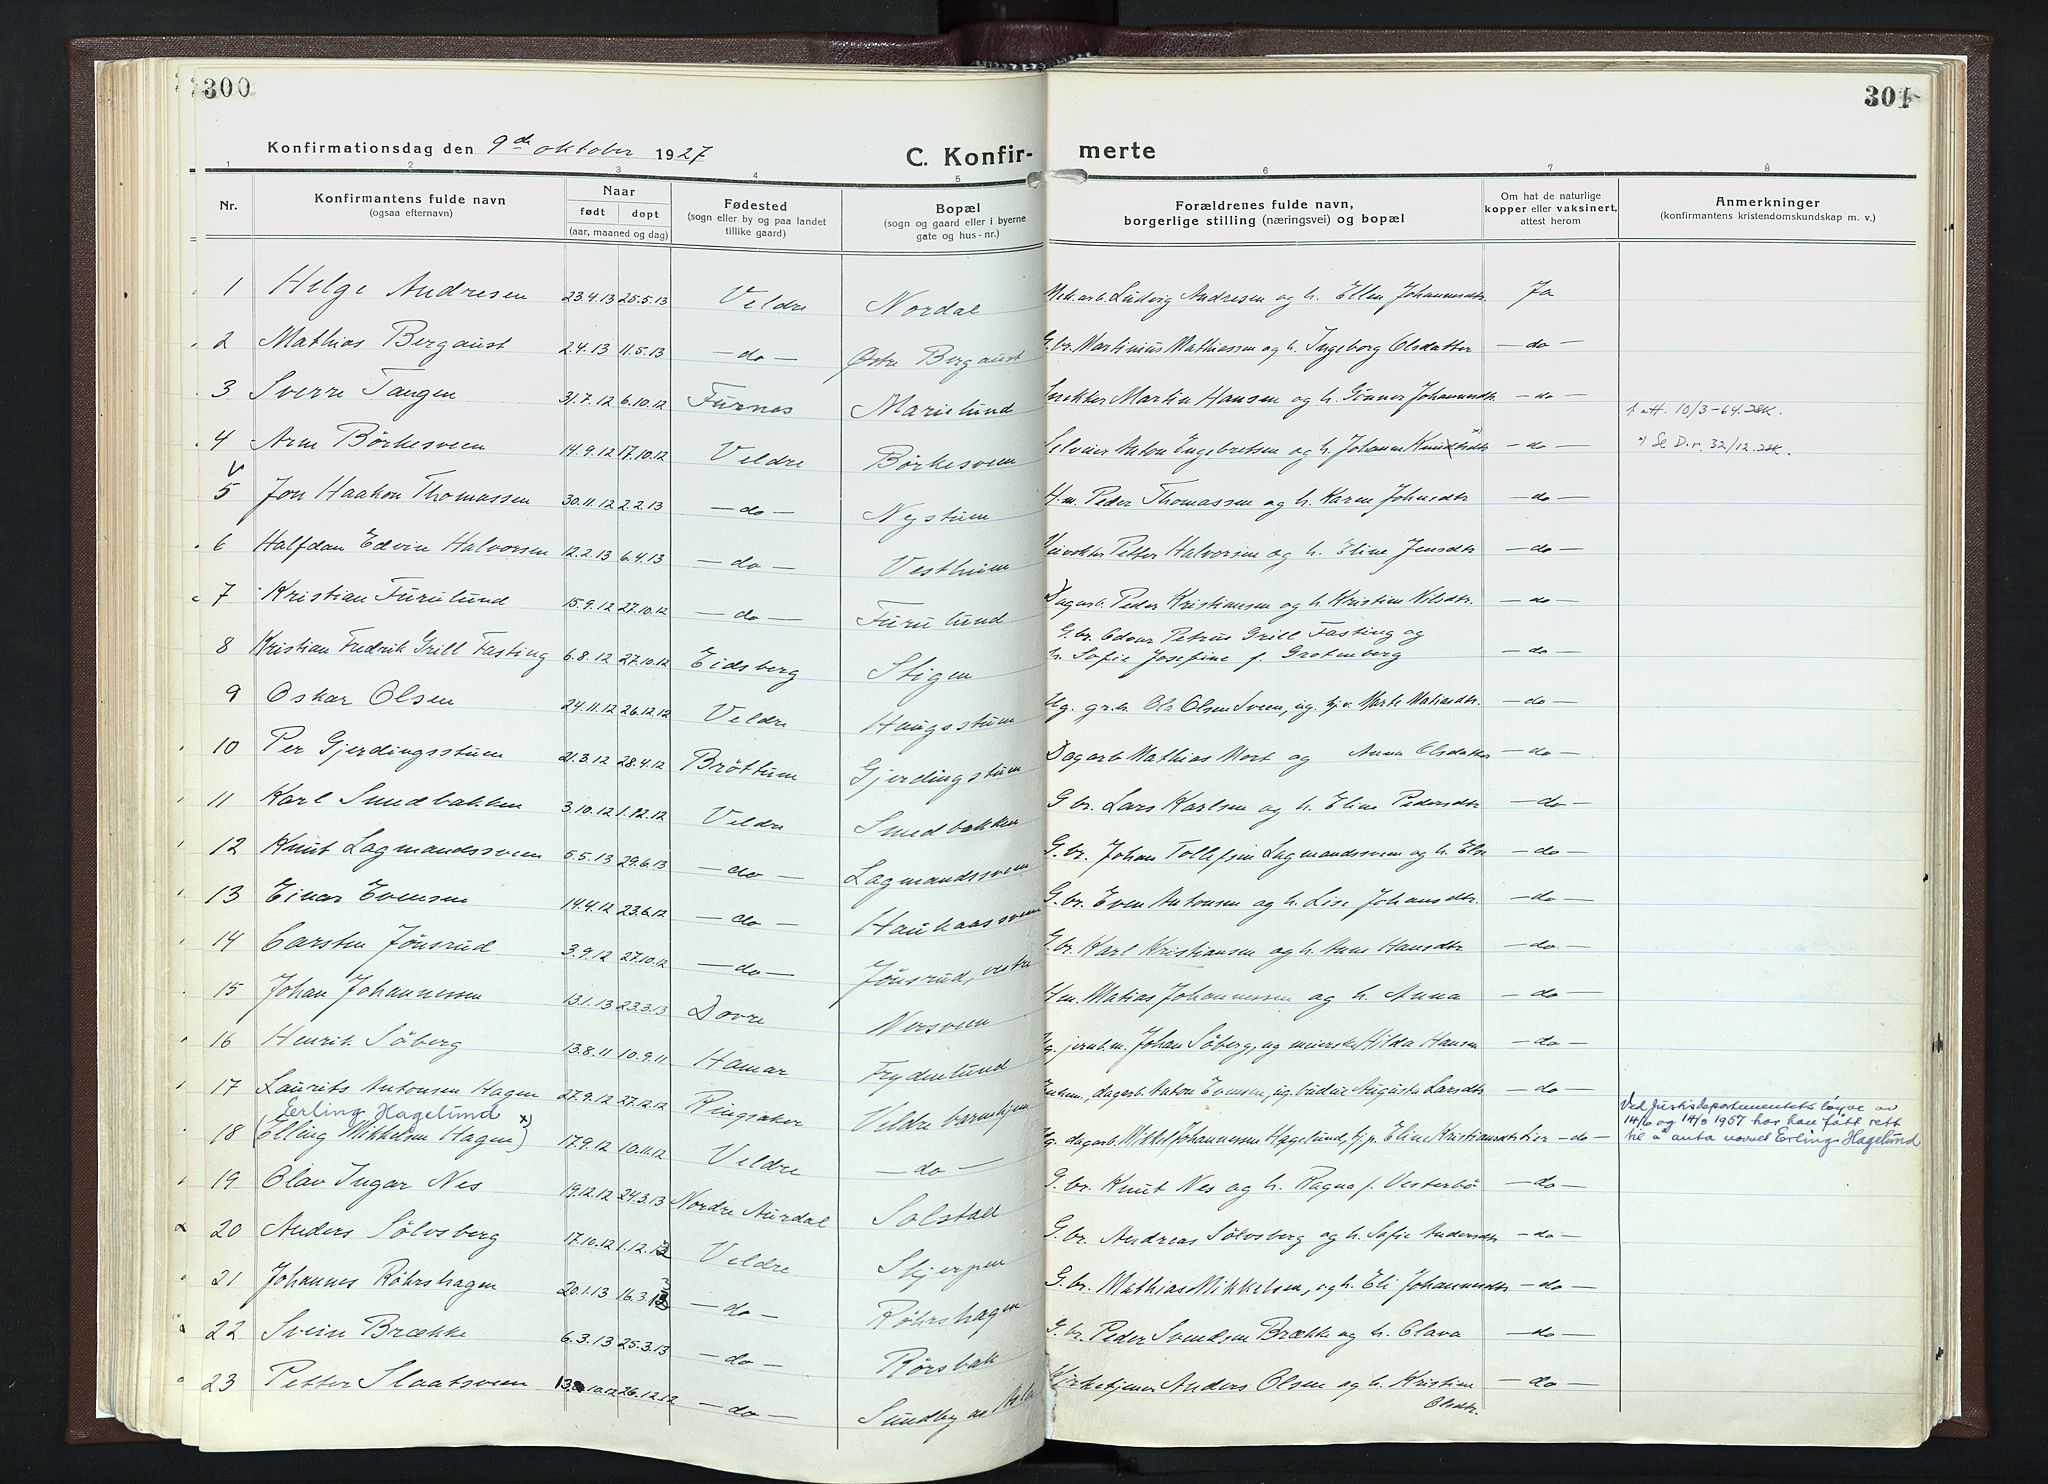 300
301
Konfirmationsdag den 9de oktober 1927
C. Konfir-
merte
1 2 3 4 5 6 7 8
Nr. Konfirmantens fulde navn (ogsaa efternavn) Naar født døpt (aar, maaned og dag) Fødested (sogn eller by og paa landet tillike gaard) Bopæl (sogn og gaard eller i byerne gate og hus-nr.) Forældrenes fulde navn, borgerlige stilling (næringsvei) og bopæl Om hat de naturlige kopper eller vaksinert, attest herom Anmerkninger (konfirmantens kristendomskundskap m. v.)
1 Helge Andresen 23.4.13 25.5.13 Veldre Nordal Mek.arb. Ludvig Andresen og h. Ellen Johannesdtr. Ja
2 Mathias Bergaust 2.4.13 11.5.13 —do— Østre Bergaust G.br. Martinius Mathiassen og h. Ingeborg Olsdatter —do—
3 Sverre Tangen 31.7.12 6.10.12 Furnes Marielund Martin Hansen og h. Gunner Johannesdtr. —do— 1. att. 10/3-64.
4 Arne Børkesveen 14.9.12 17.10.12 Veldre Børkesveen Selveier Anton Ingebretsen og h. Johanne —do— x) Se D.r. 32/12.
5 Jon Haakon Thomassen 30.11.12 2.2.13 —do— Nystuen H.m. Peder Thomassen og h. Karen Johnsdtr —do—
6 Halfdan Edvin Halvorsen 12.2.13 6.4.13 —do— Vesthum Petter Halvorsen og h. Eline Jensdtr —do—
7 Kristian Furulund 15.9.12 27.10.12 —do— Furulund Dagarb. Peder Kristiansen og h. Kristine Nilsdtr. —do—
8 Kristian Fredrik Grill Fasting 6.8.12 27.10.12 Eidsberg Stigen G.br. Odvar Petrus Grill Fasting og
h. Sofie Josefine f. Grotenberg —do—
9 Oskar Olsen 24.11.12 26.12.12 Veldre Haugsstuen Ug. gr.br. Ole Olsen Sveen, ug. tj.v. Marte Matiasdtr —do—
10 Per Gjerdingsstuen 21.3.12 28.4.12 Brøttum Gjerdingstuen Dagarb. Mathias Mort og Anna Olsdatter —do—
11 Karl Smedbakken 3.10.12 1.12.12 Veldre Smedbakken G.br. Lars Karlsen og h. Eline Pedersdtr —do—
12 Knut Lagmandssveen 5.5.13 29.6.13 —do— Lagmandssveen G.br. Johan Tollefsen Lagmandssveen og h. Else —do—
13 Einar Evensen 14.4.12 23.6.12 —do— Hauhaassveen G.br. Even Antonsen og h. Lise Johansdtr. —do—
14 Carsten Jønsrud 3.9.12 27.10.12 —do— Jønsrud, vestre G.br. Karl Kristiansen og h. Anne Hansdtr —do—
15 Johan Johannessen 13.1.13 23.3.13 Dovre Nersveen H.m. Matias Johannessen og h. Anna —do—
16 Henrik Søberg 13.8.11 10.9.11 Hamar Frydenlund Ug. jernb.m. Johan Søberg, ug meierske Hilda Hansen —do—
17 Laurits Antonsen Hagen 27.9.12 27.12.12 Ringsaker Veldre barnehjem Enkem., dagarb. Anton Evensen, ug. budeie Augusta Larsdtr —do—
Erling Hagelund x)
18 (Elling Mikkelsen Hagen) 17.9.12 10.11.12 Veldre —do— Ug. dagarb. Mikkel Johannesen Hagelund, tj.p. Eline Kristiansdtr —do—
Ved Justisdepartementets løyve av
14/6 og 14/8 1957 har han fått rett
til å anta navnet Erling Hagelund
19 Olav Ingar Nes 19.12.12 24.3.13 Nordre Aurdal Solstad G.br. Knut Nes og h. Ragna f. Vesterbø —do—
20 Anders Sølvsberg 17.10.12 1.12.12 Veldre Skjerpen G.br. Andreas Sølvsberg og h. Sofie Andersdtr —do—
21 Johannes Røhrshagen 20.1.13 16.3.13 —do— Røhrshagen G.br. Mathias Mikkelsen, og h. Eli Johannesdtr —do—
22 Svein Brække 6.3.13 25.3.13 —do— Rørsbak G.br. Peder Svendsen Brække og h. Olava —do—
23 Petter Slaatsveen 13.10.12 26.12.12 —do— Sundby Kirketjener Anders Olsen og h. Kristine
Olsdtr. —do—